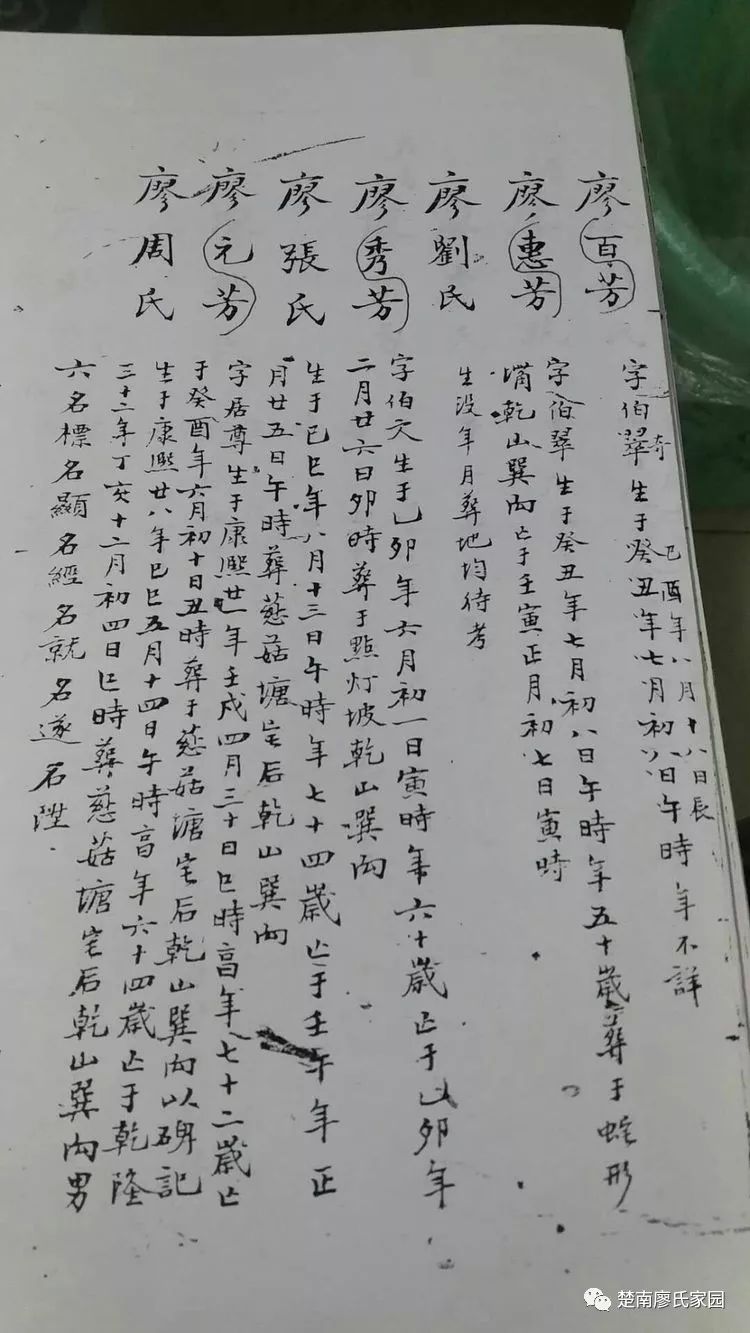 廖百芳
字伯翠 生于癸丑年七月初八日午時年不詳
奇
己酉年八月十八日長
廖惠芳
字伯翠生于癸丑年七月初八日午時年五十歲葬于蛇形
嘴乾山巽向亡于壬寅正月初七日寅時
廖劉氏
生没年月葬地均待考
廖秀芳
字伯文生于乙卯年六月初一日寅時年六十歲亡于乙卯年
二月廿六日卯時葬于點灯坡乾山巽向
廖張氏
生于己巳年八月十三日午時年七十四歲亡于壬午年正
月廿五日午時葬慈菇塘宅后乾山巽向
廖元芳
字居尊生于康熙廿一年壬戌四月三十日巳時高年七十二歲亡
于癸酉年六月初十日丑時葬于慈菇塘宅后乾山巽向以碑記
廖周氏
生于康熙廿八年己巳五月十四日午時高年六十四歲亡于乾隆
三十二年丁亥十二月初四日巳時葬慈菇塘宅后乾山巽向男
六名標名顯名經名就名遂名陞
楚南廖氏家园